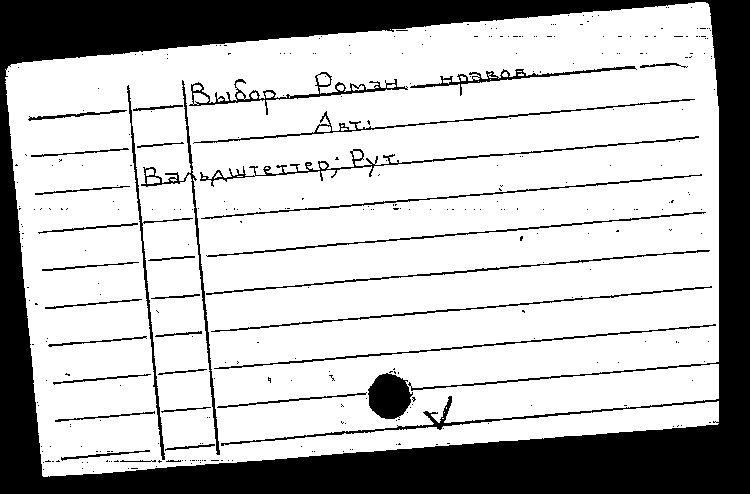 Выбор. Роман нравов.
Авт.:
Вальдштеттер, Рут.